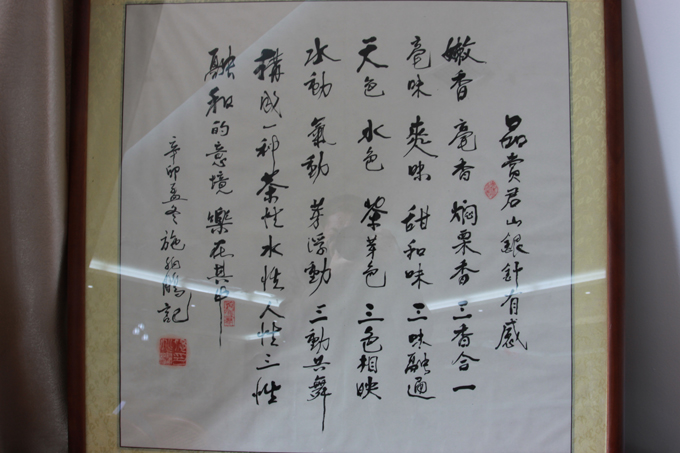 品赏君山銀針有感
嫩香 毫香 焖栗香 三香合一
毫味 爽味 甜和味 三味融通
天色 水色 茶芽色 三色相映
水動 氣動 芽浮動 三動共舞
構成一种茶性水性人性三性
融和的意境 樂在其中
辛卯孟冬 施 記